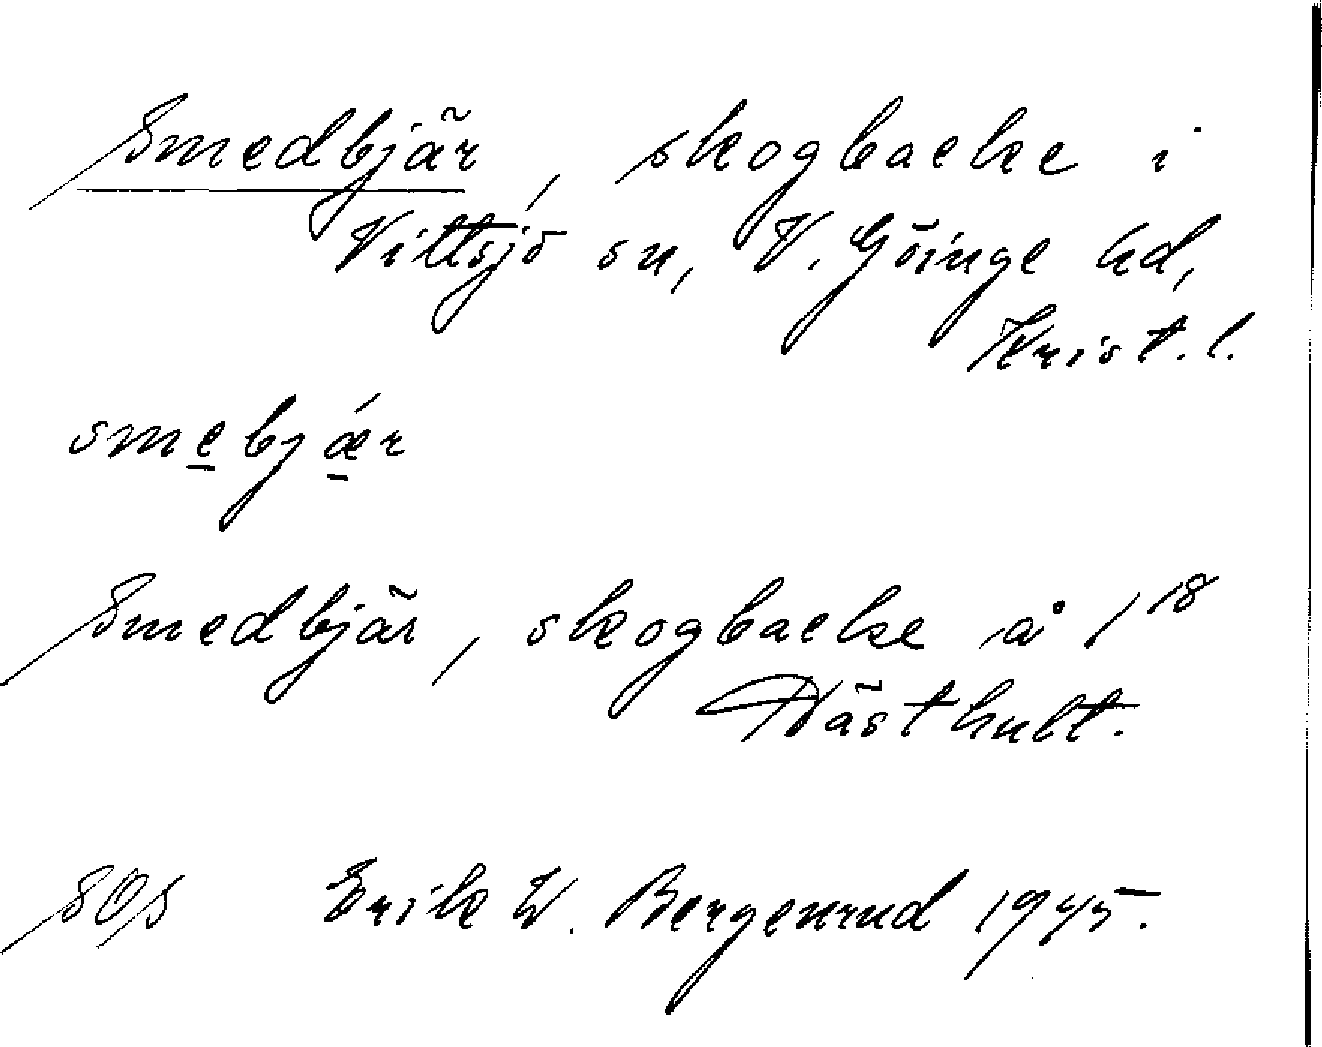 Smedbjär, skogbacke i
Vittsjö sn, V. Göinge hd,
Krist. l.
smebjǽr
Smedbjär, skogbacke å 1¹⁸
Hästhult.
SOS Erik W. Bergenrud 1945.